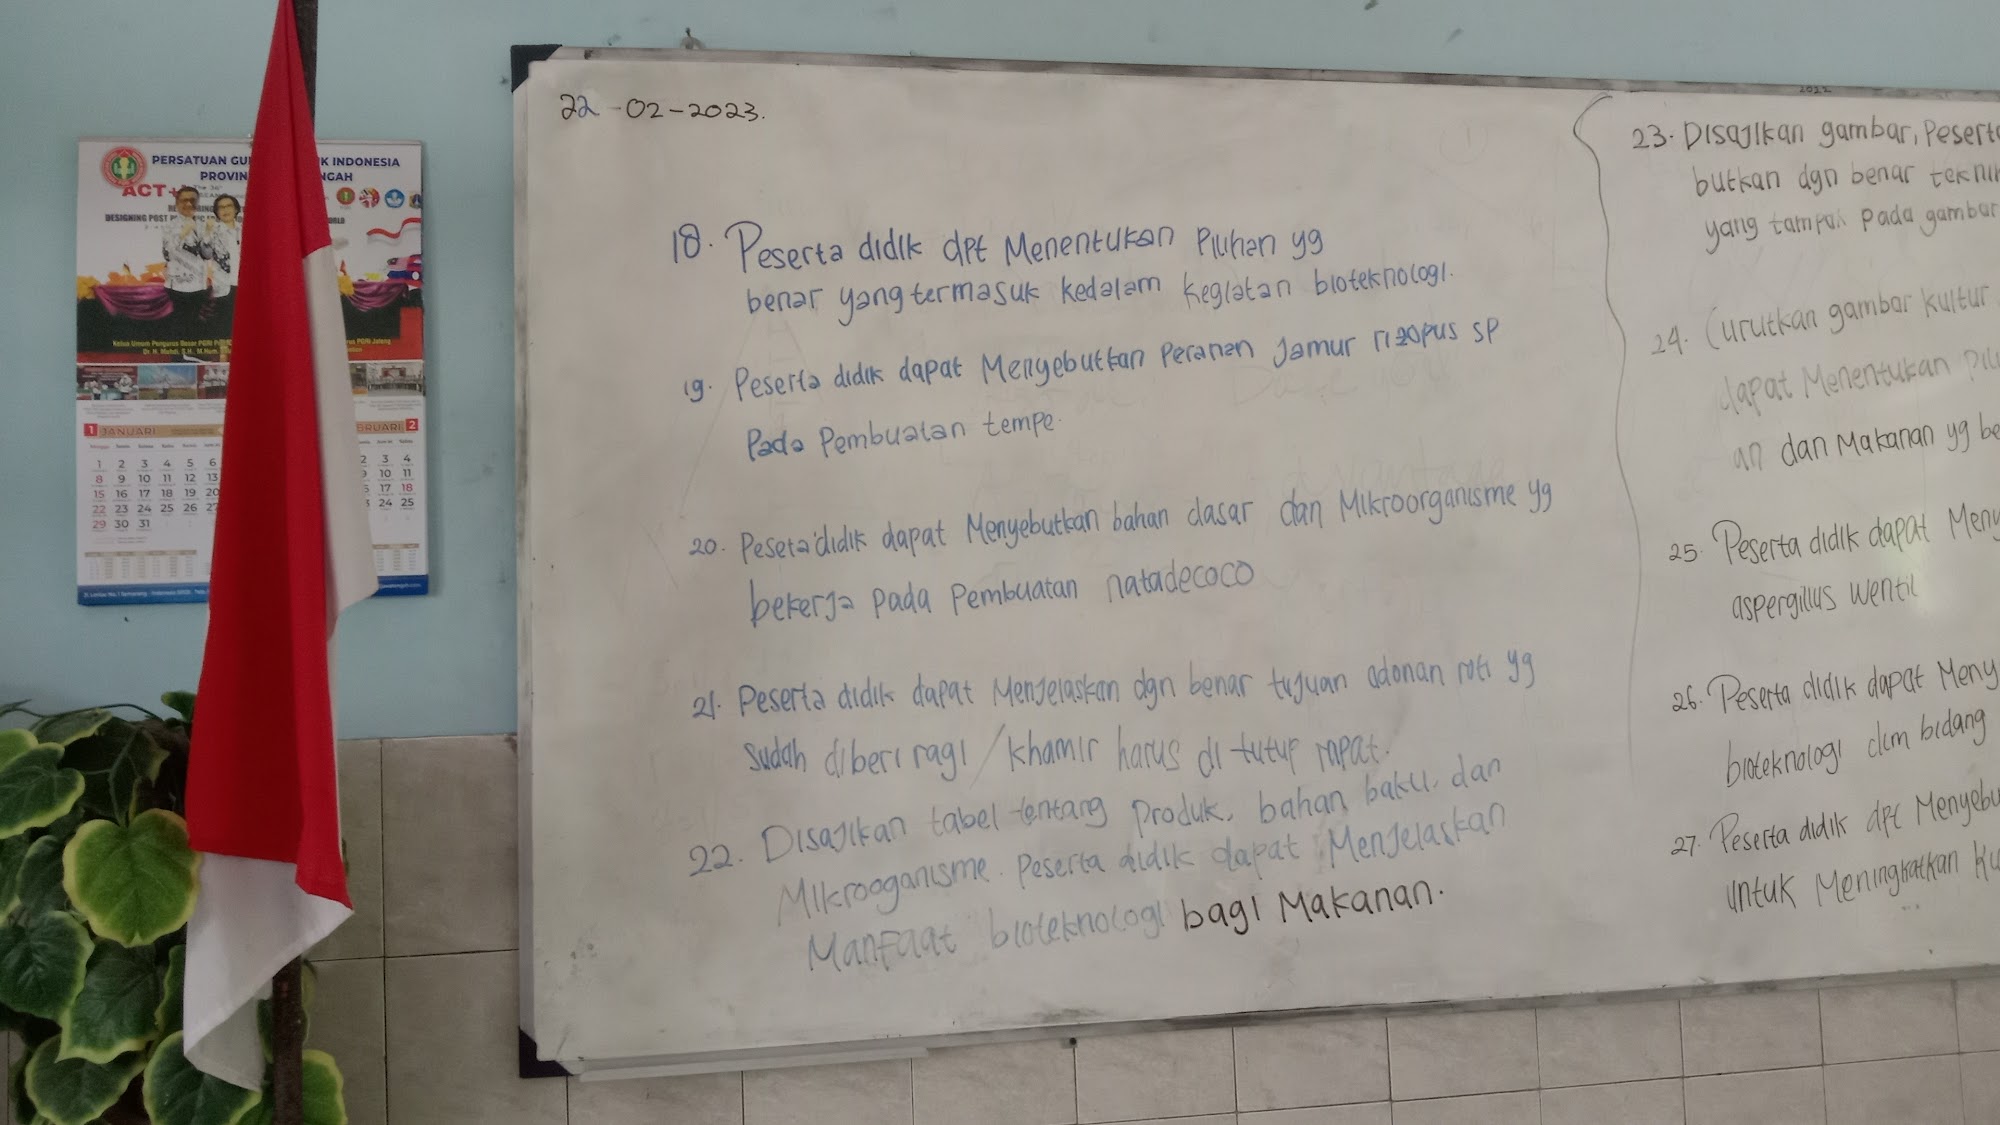 PERSATUAN GU K INDONESIA
PROVIN NGAH
ACT+
DESIGNING POST
1 JANUARI
BRUARI 2
1 2 3 4 5 6
8 9 10 11 12 13
15 16 17 18 19 20
22 23 24 25 26 27
29 30 31
2 3 4
10 11
17 18
24 25
22-02-2023.
18. Peserta didik dpt Menentukan Piluhan yg
benar yang termasuk kedalam kegiatan bioteknologi.
19. Peserta didik dapat Menyebutkan Peranan Jamur rizopus sp
Pada Pembuatan tempe.
20. Peseta didik dapat Menyebutkan bahan dasar dan Mikroorganisme yg
bekerja pada Pembuatan natadecoco
21. Peserta didik dapat Menjelaskan dgn benar tujuan adonan roti yg
sudah diberi ragi / khamir harus di tutup rapat.
22. Disajikan tabel tentang produk, bahan baku, dan
Mikrooganisme. Peserta didik dapat Menjelaskan
Manfaat bioteknologi bagi Makanan.
2022
23. Disajikan gambar, Peserta
butkan dgn benar teknik
yang tampak pada gambar
24. Curutkan gambar kultur
dapat Menentukan Pil
an dan Makanan yg be
25. Peserta didik dapat Meny
aspergillus wentil
26. Peserta didik dapat Meny
bioteknologi dlm bidang
27. Peserta didik dpt Menyebu
untuk Meningkatkan Ku